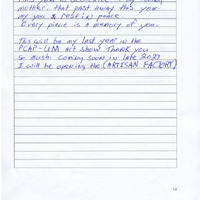 mother. that past away this year.
may you R rest in peace.
Every piece is a memory of you.
This will be my last year in the
PCAP-UM art show Thank you
So much. Coming soon in late 2027
I will be opening the (ARTISAN FACTORY)